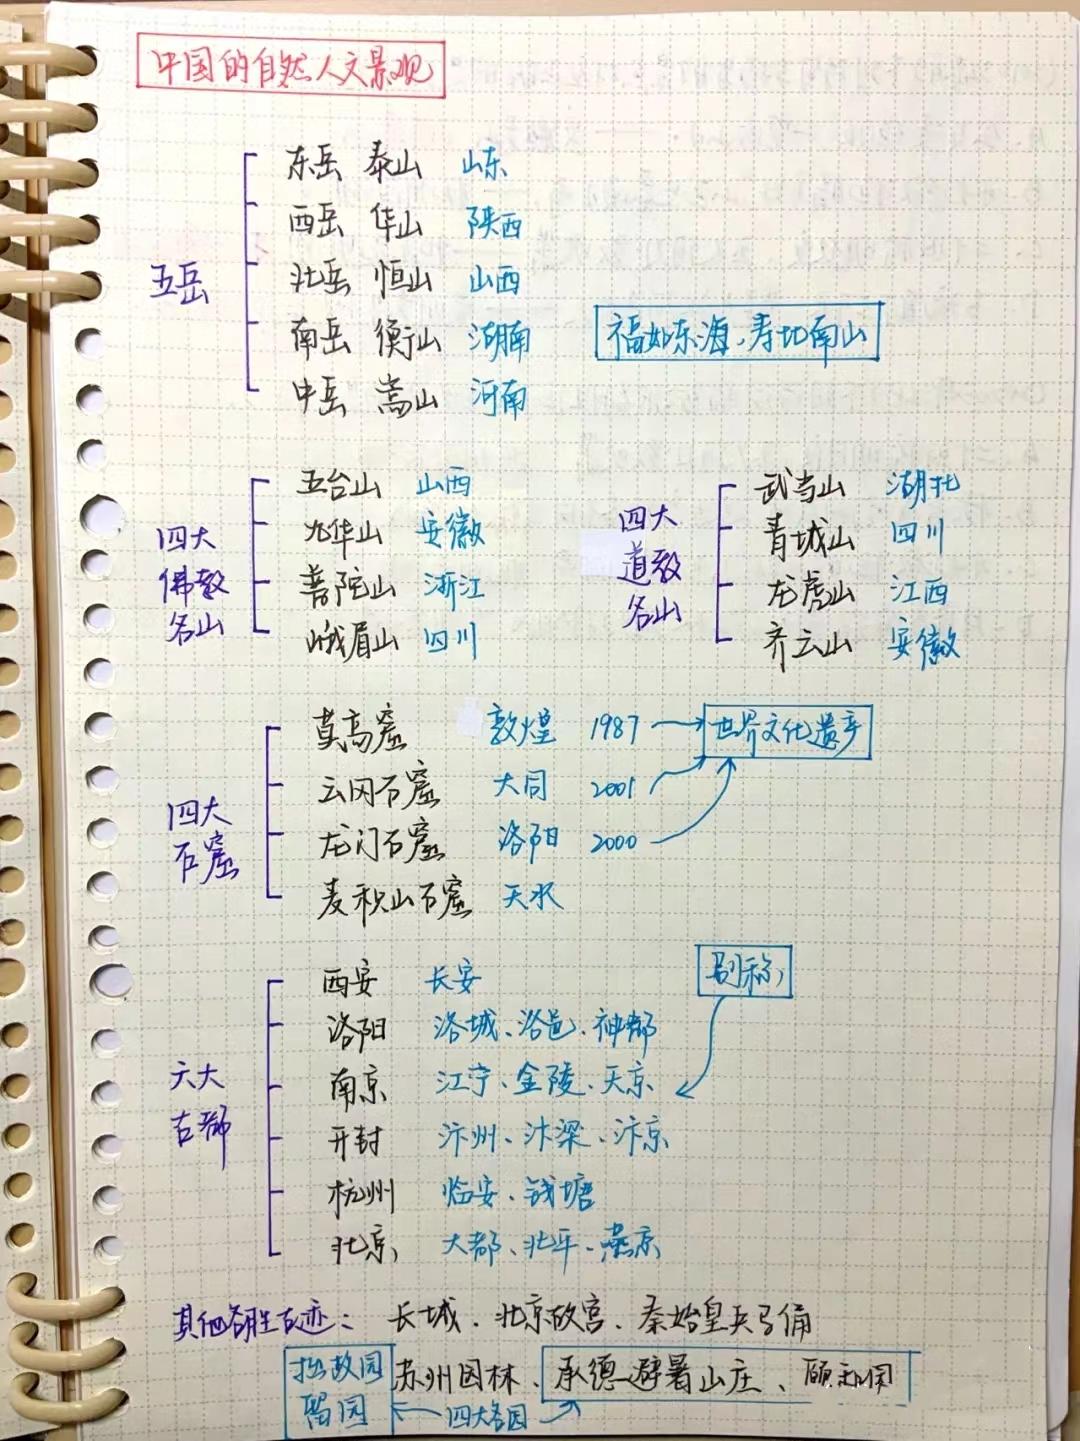 中国的自然人文景观
五岳
东岳 泰山 山东
西岳 华山 陕西
北岳 恒山 山西
南岳 衡山 湖南
中岳 嵩山 河南
福如东海、寿比南山
四大
佛教
名山
五台山 山西
九华山 安徽
普陀山 浙江
峨眉山 四川
四大
道教
名山
武当山 湖北
青城山 四川
龙虎山 江西
齐云山 安徽
四大
石窟
莫高窟 敦煌 1987
云冈石窟 大同 2001
龙门石窟 洛阳 2000
麦积山石窟 天水
世界文化遗产
六大
古都
别称
西安 长安
洛阳 洛城、洛邑、神都
南京 江宁、金陵、天京
开封 汴州、汴梁、汴京
杭州 临安、钱塘
北京 大都、北平、燕京
其他名胜古迹: 长城、北京故宫、秦始皇兵马俑
拙政园 苏州园林、承德避暑山庄、颐和园
留园 四大名园